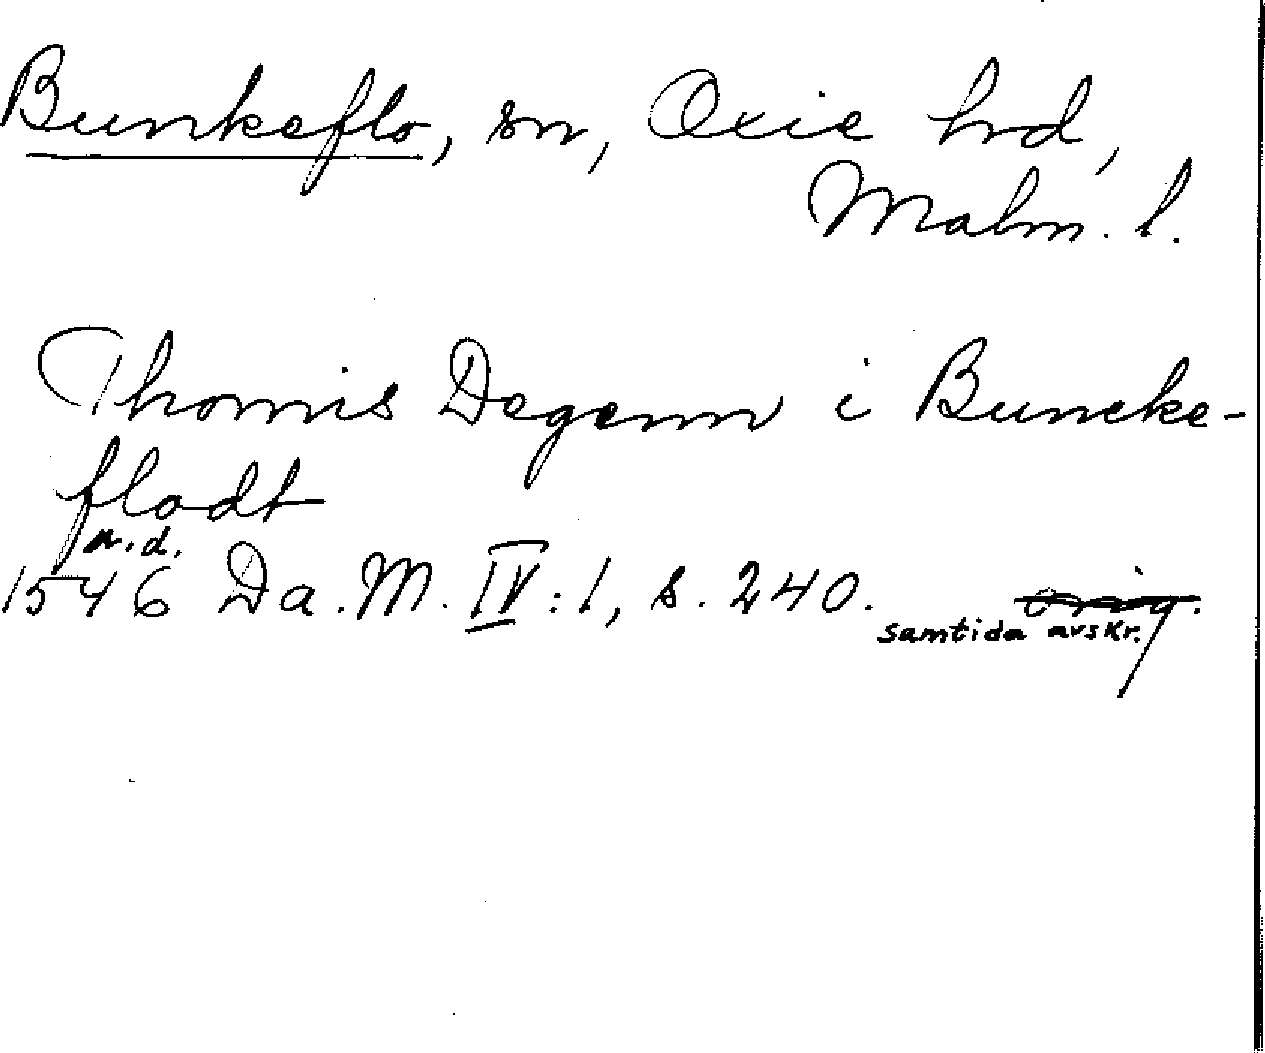 Bunkeflo, sn, Oxie hrd,
Malm. l.
Thomis Degenn i Buncke-
flodt
n.d.
1546 Da. M. IV: 1, s. 240. orig.
samtida avskr.